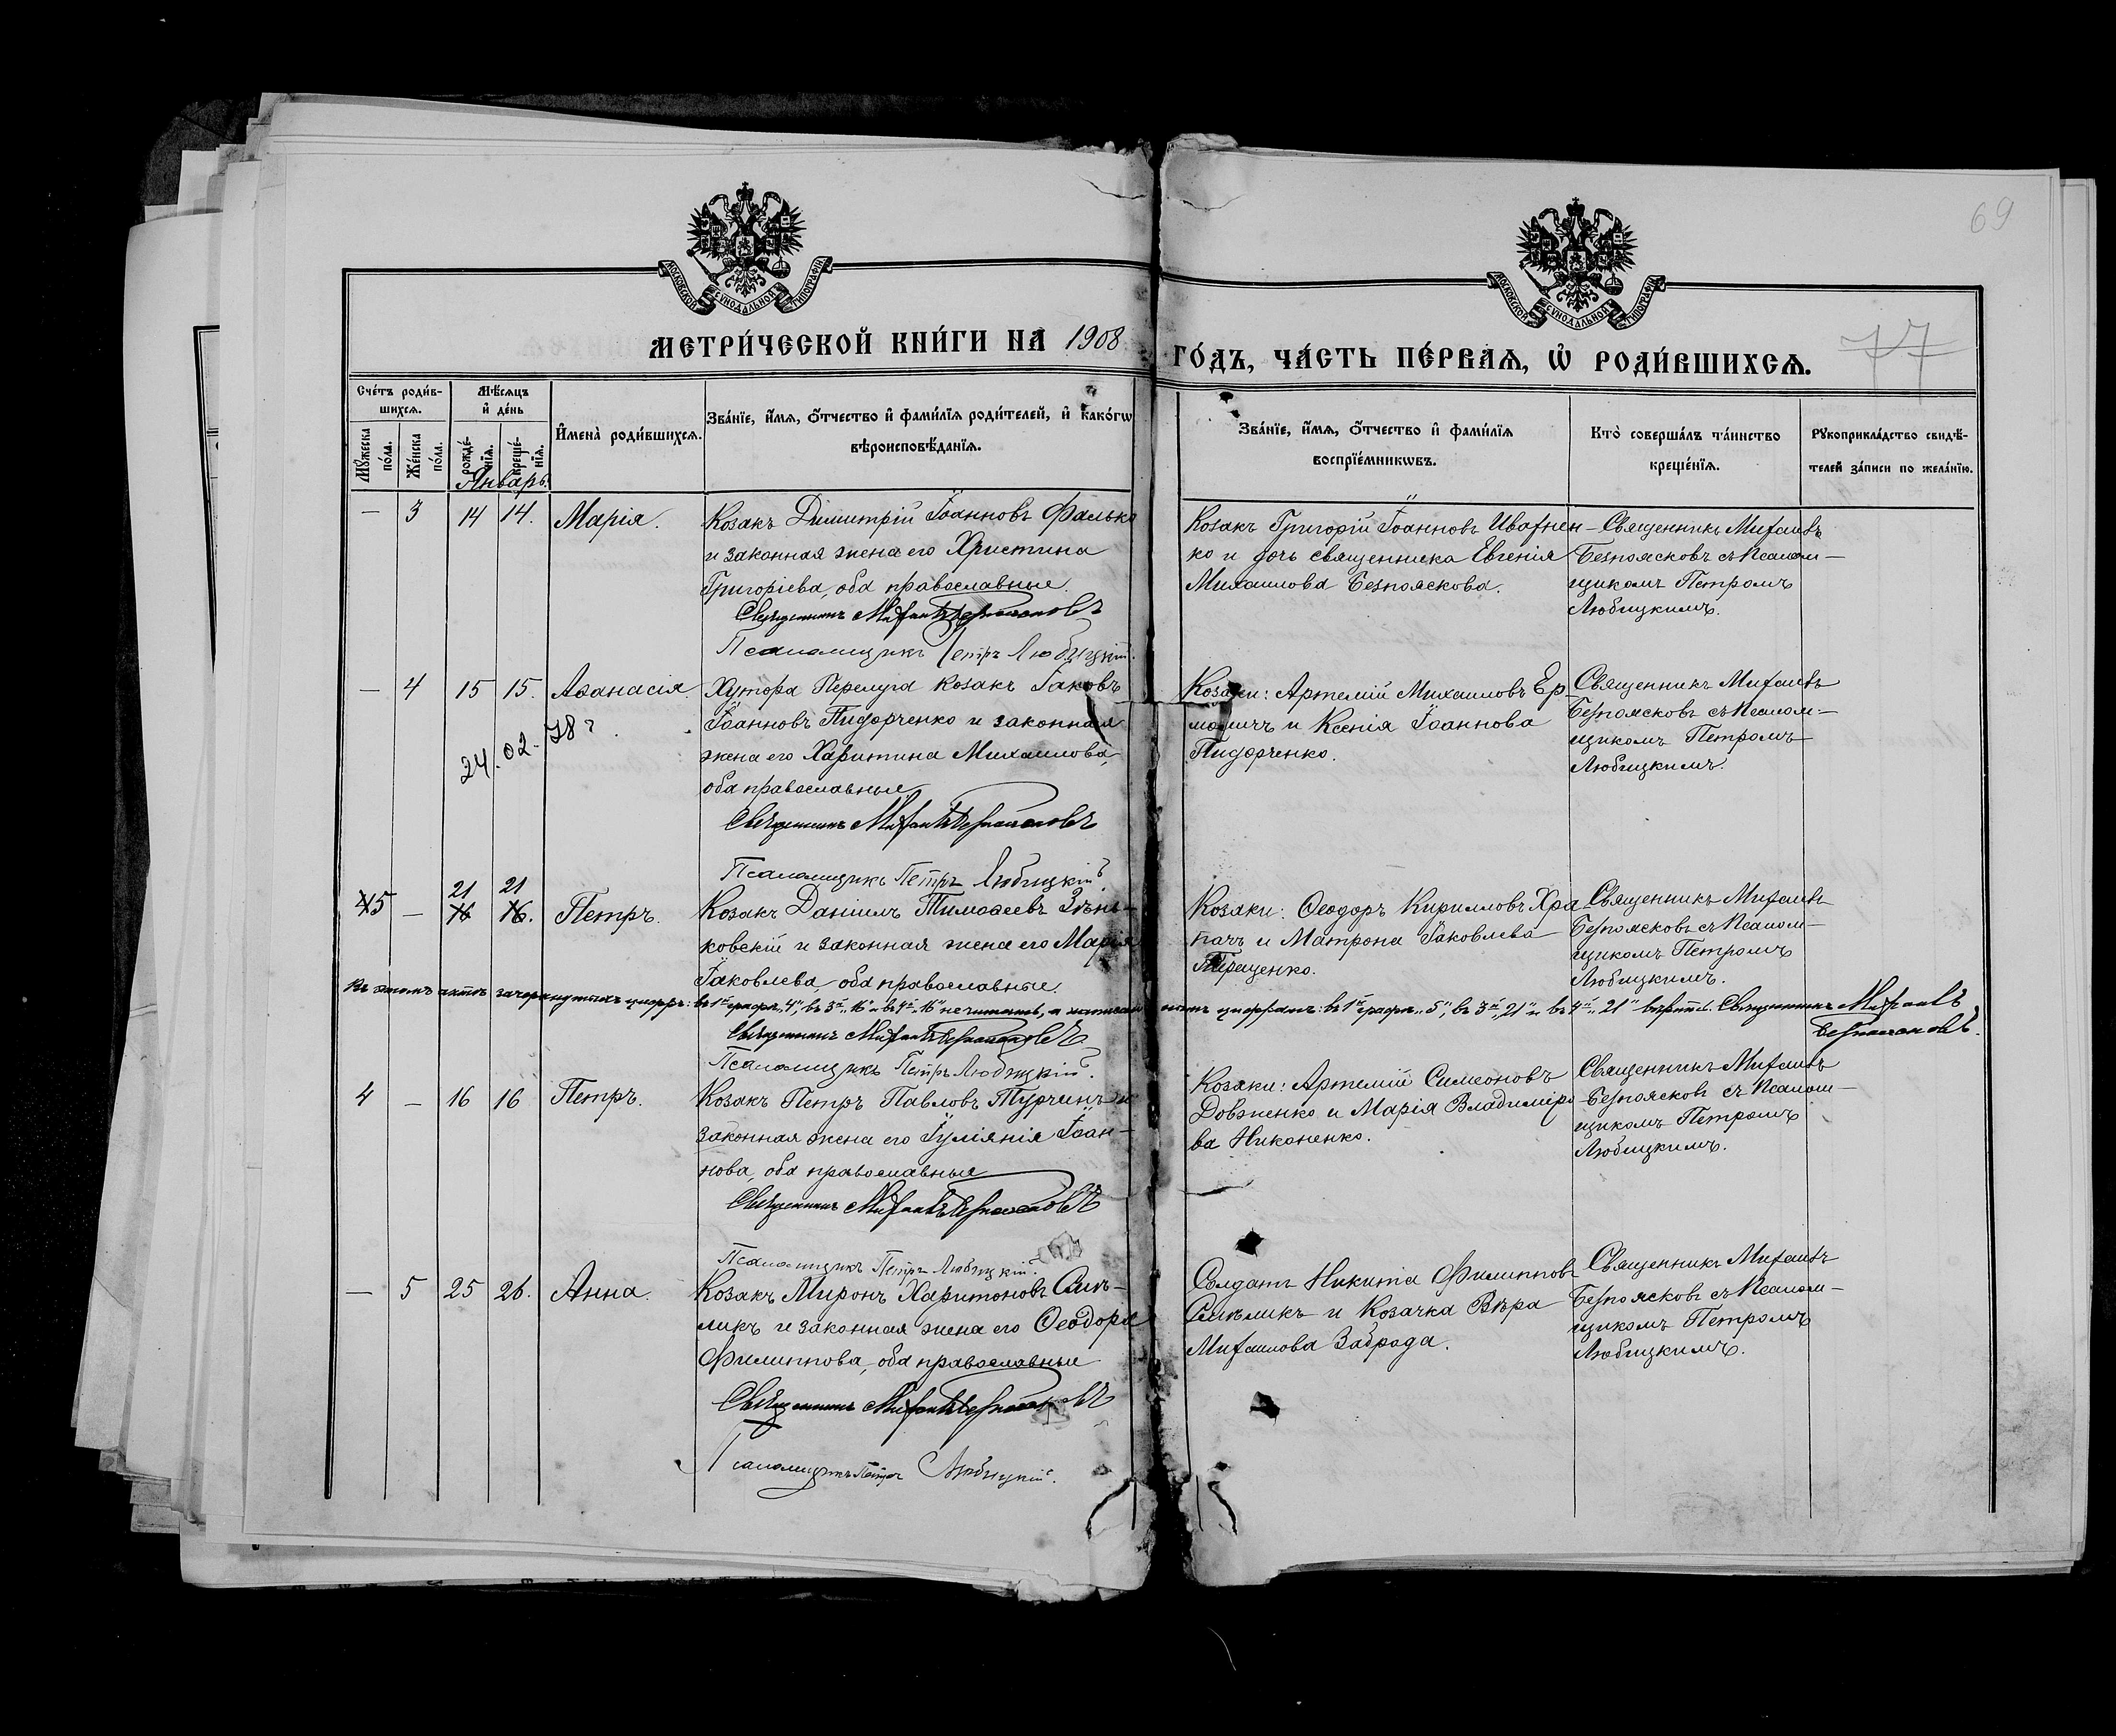 69
МОСКОВСКОЙ СѴНОДАЛЬНОЙ ТИПОГРАФІИ
МОСКОВСКОЙ СѴНОДАЛЬНОЙ ТИПОГРАФІИ
МЕТРИ́ЧЕСКОЙ КНИ́ГИ НА 1908 ГО́ДЪ, ЧА́СТЬ ПЕ́РВАѦ, Ѡ҆ РОДИ́ВШИХСѦ.
77
Сче́тъ роди́в-
шихсѧ.
Мꙋ́жеска по́ла.
Же́нска по́ла.
Мѣ́сѧцъ
и҆ де́нь
рожде́-нїѧ.
креще́-нїѧ.
И҆мена̀ роди́вшихсѧ.
Зва́нїе, и҆́мѧ, ѻ҆́тчество и҆ фами́лїѧ роди́телей, и҆ како́гѡ
вѣроисповѣ́данїѧ.
Зва́нїе, и҆́мѧ, ѻ҆́тчество и҆ фами́лїѧ
воспрїе́мникѡвъ.
Кто̀ соверша́лъ та́инство
креще́нїѧ.
Рꙋкоприкла́дство свидѣ́-
телей за́писи по жела́нїю.
Январь.
— 3 14 14. Марія.
Козакъ Димитрій Іоанновъ Фалько
и законная жена его Христина
Григоріева, оба православные.
Священникъ Михаилъ Безпоясковъ
Псаломщикъ Петръ Любицкій.
Козакъ Григорій Іоанновъ Ивахнен-
ко и дочь священника Евгенія
Михаилова Безпояскова.
Священникъ Михаилъ
Безпоясковъ съ Псалом-
щикомъ Петромъ
Любицкимъ.
— 4 15 15. Аѳанасія.
24.02.78 г.
Хутора Перелуга козакъ Іаковъ
Іоанновъ Пидорченко и законная
жена его Харитина Михаилова,
оба православные
Священникъ Михаилъ Безпоясковъ
Псаломщикъ Петръ Любицкій.
Козаки: Артемій Михаиловъ Ер-
моличъ и Ксенія Іоаннова
Пидорченко.
Священникъ Михаилъ
Безпоясковъ съ Псалом-
щикомъ Петромъ
Любицкимъ.
21 21
4 5 — 16 16. Петръ.
Козакъ Даніилъ Тимоѳеевъ Зѣнь-
ковскій и законная жена его Марія
Іаковлева, оба православные.
Козаки: Ѳеодоръ Кирилловъ Хра-
пачъ и Матрона Іаковлева
Тищенко.
Священникъ Михаилъ
Безпоясковъ съ Псалом-
щикомъ Петромъ
Любицкимъ.
Въ этомъ актѣ зачеркнутыхъ цифръ: въ 1й графѣ „4“, въ 3й „16“ и въ 4й „16“ не читать, а цифрамъ: въ 1й графѣ „5“, въ 3й „21“ и въ 4й „21“ вѣрить. Священникъ Михаилъ
Безпоясковъ.
Священникъ Михаилъ Безпоясковъ
Псаломщикъ Петръ Любицкій.
4 — 16 16 Петръ.
Козакъ Петръ Павловъ Турчинъ и
законная жена его Іуліянія Іоан-
нова, оба православные
Священникъ Михаилъ Безпоясковъ
Псаломщикъ Петръ Любицкій.
Козаки: Артемій Симеоновъ
Довженко и Марія Владиміро-
ва Никоненко.
Священникъ Михаилъ
Безпоясковъ съ Псалом-
щикомъ Петромъ
Любицкимъ.
— 5 25 26. Анна.
Козакъ Миронъ Харитоновъ Смѣ-
ликъ и законная жена его Ѳеодора
Филиппова, оба православные
Священникъ Михаилъ Безпоясковъ
Псаломщикъ Петръ Любицкій.
Солдатъ Никита Филипповъ
Смѣликъ и козачка Вѣра
Михаилова Заброда.
Священникъ Михаилъ
Безпоясковъ съ Псалом-
щикомъ Петромъ
Любицкимъ.